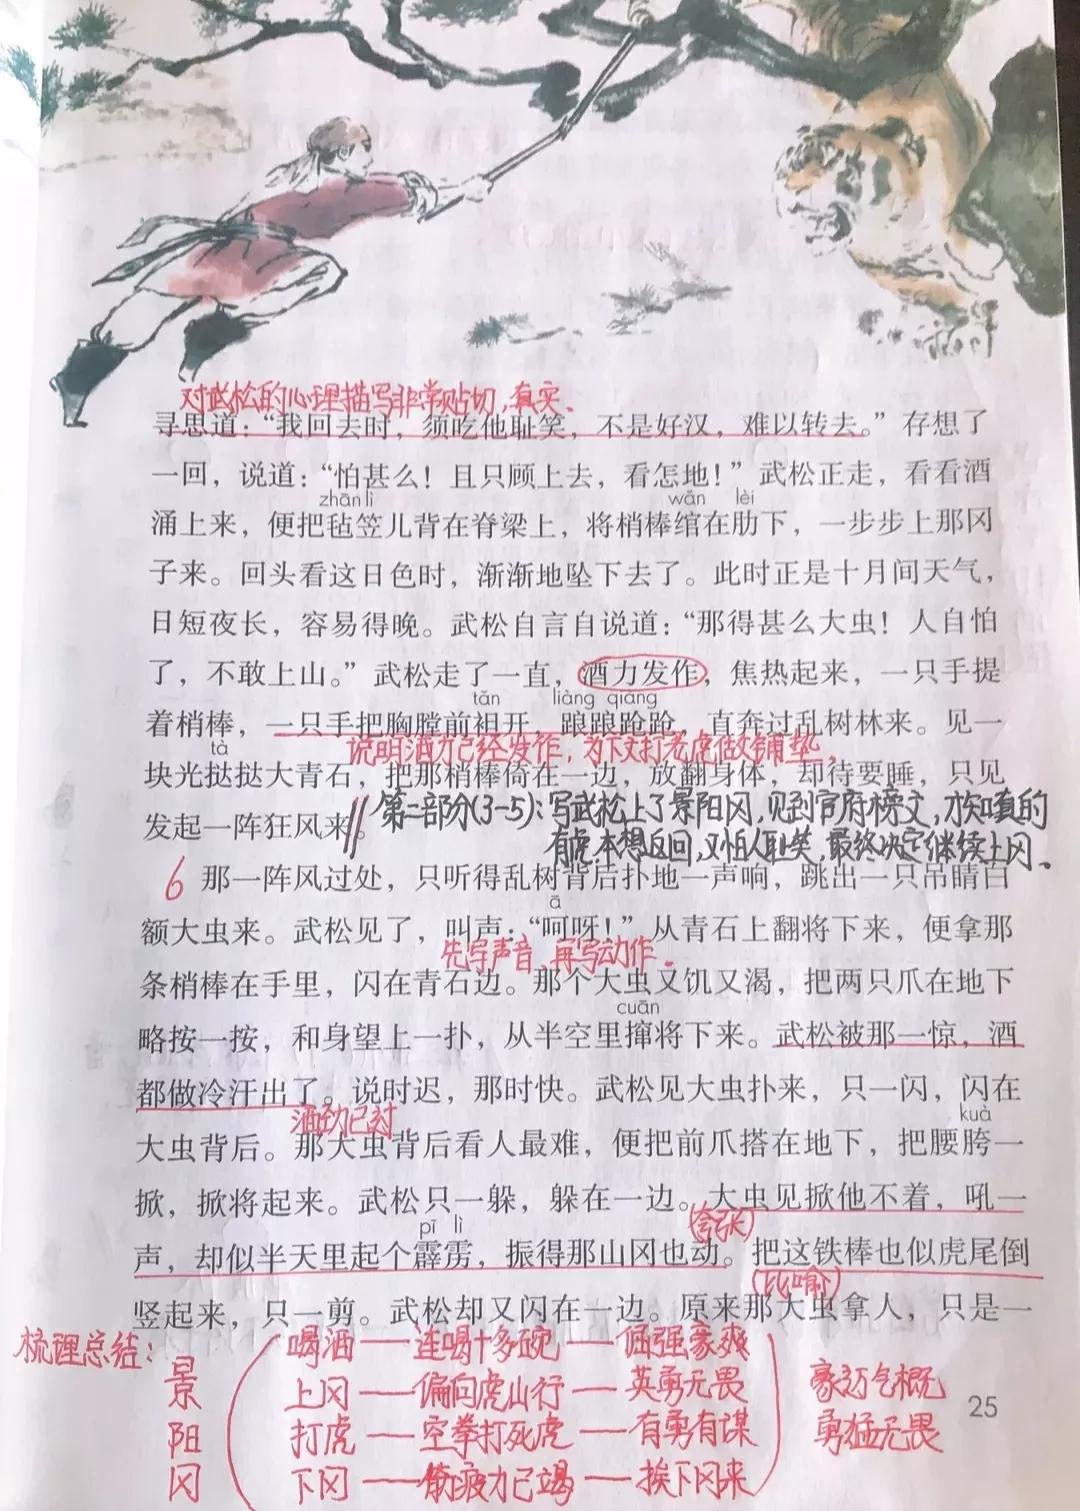 对武松的心理描写非常贴切,真实、
寻思道:“我回去时,须吃他耻笑,不是好汉,难以转去。”存想了
一回,说道:“怕甚么!且只顾上去,看怎地!”武松正走,看看酒
zhān lì wǎn lèi
涌上来,便把毡笠儿背在脊梁上,将梢棒绾在肋下,一步步上那冈
子来。回头看这日色时,渐渐地坠下去了。此时正是十月间天气,
日短夜长,容易得晚。武松自言自说道:“那得甚么大虫!人自怕
了,不敢上山。”武松走了一直,酒力发作,焦热起来,一只手提
tǎn liàng qiàng
着梢棒,一只手把胸膛前袒开,踉踉跄跄,直奔过乱树林来。见一
说明酒力已经发作,为下文打老虎做铺垫。
tà
块光挞挞大青石,把那梢棒倚在一边,放翻身体,却待要睡,只见
发起一阵狂风来。
第二部分(3-5):写武松上了景阳冈,见到官府榜文,才知真的
有虎,本想返回,又怕人耻笑,最终决定继续上冈、
6 那一阵风过处,只听得乱树背后扑地一声响,跳出一只吊睛白
ā
额大虫来。武松见了,叫声:“呵呀!”从青石上翻将下来,便拿那
先写声音,再写动作.
条梢棒在手里,闪在青石边。那个大虫又饥又渴,把两只爪在地下
cuān
略按一按,和身望上一扑,从半空里撺将下来。武松被那一惊,酒
都做冷汗出了。说时迟,那时快。武松见大虫扑来,只一闪,闪在
酒劲已过 kuà
大虫背后。那大虫背后看人最难,便把前爪搭在地下,把腰胯一
掀,掀将起来。武松只一躲,躲在一边。大虫见掀他不着,吼一
pī lì (夸张)
声,却似半天里起个霹雳,振得那山冈也动。把这铁棒也似虎尾倒
(比喻)
竖起来,只一剪。武松却又闪在一边。原来那大虫拿人,只是一
梳理总结:
景阳冈
喝酒——连喝十多碗——倔强豪爽
上冈——偏向虎山行——英勇无畏
打虎——空拳打死虎——有勇有谋
下冈——筋疲力已竭——挨下冈来
豪迈气概
勇猛无畏
25